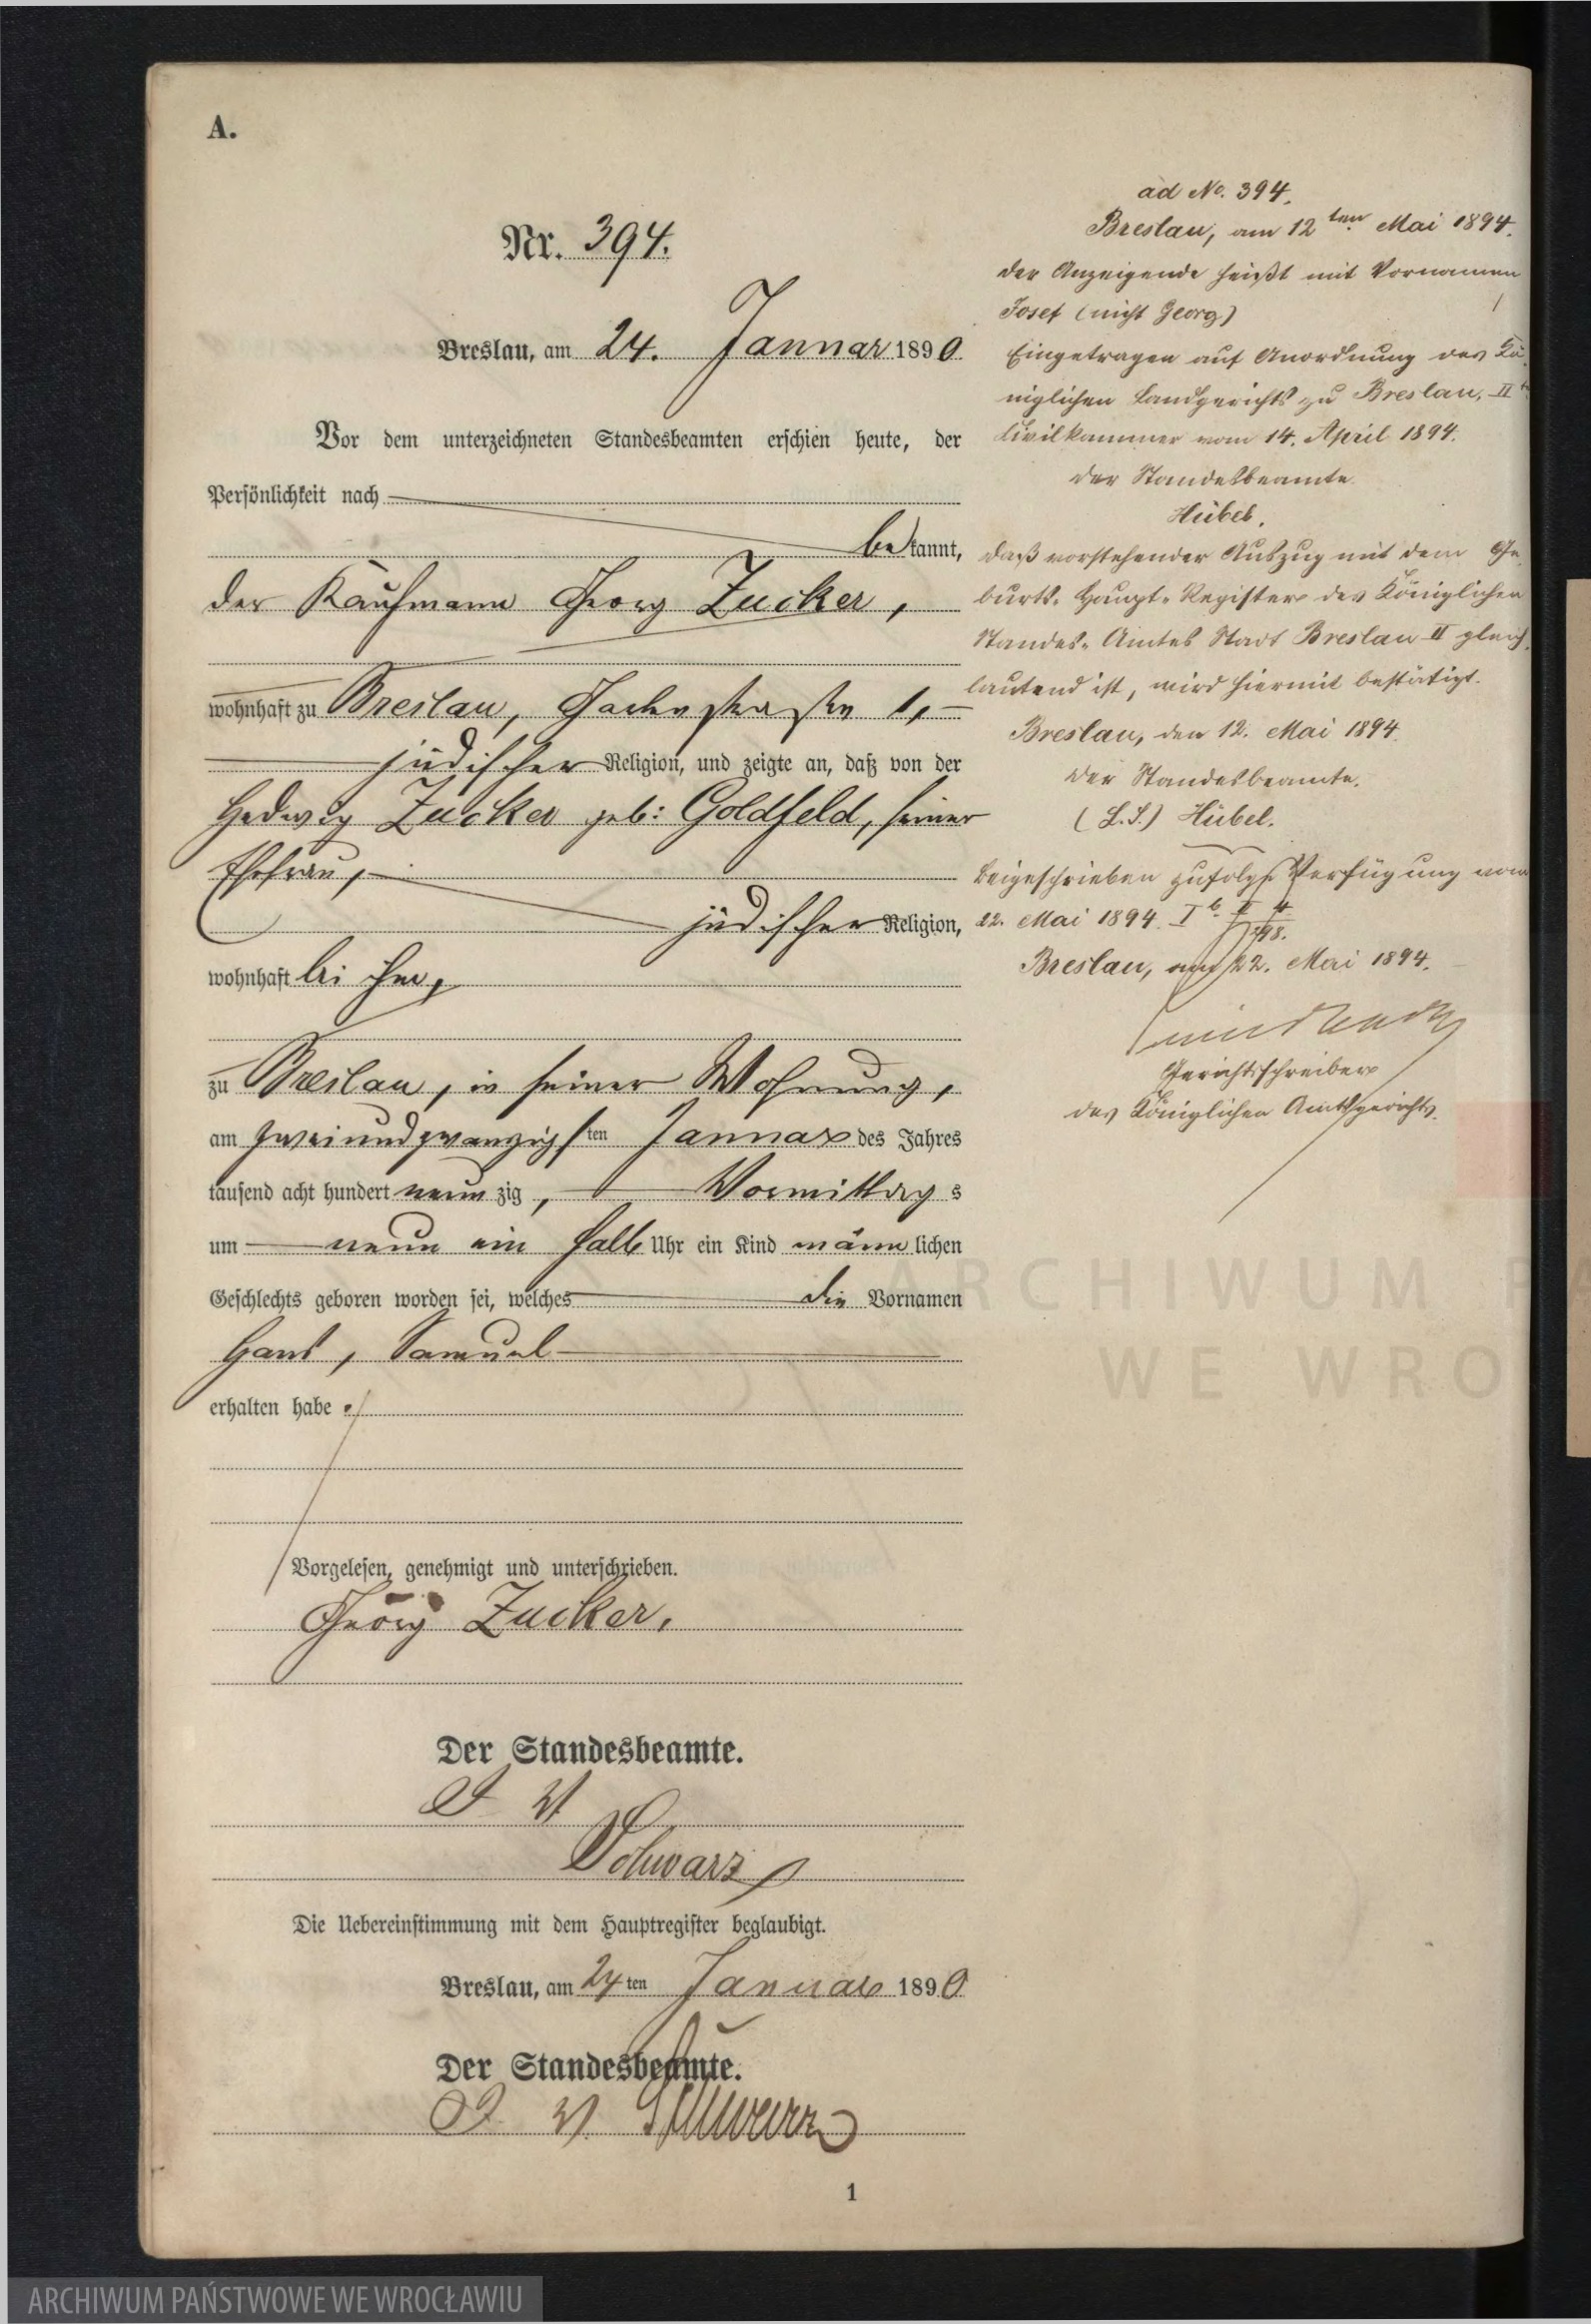 A.
Nr. 394.
Breslau, am 24. Januar 1890
Vor dem unterzeichneten Standesbeamten erschien heute, der
Persönlichkeit nach
bekannt,
der Kaufmann Georg Zucker,
wohnhaft zu Breslau, 1,
jüdischer Religion, und zeigte an, daß von der
Hedwig Zucker geb: Goldfeld, seiner
Ehefrau,
jüdischer Religion,
wohnhaft bei ihm,
zu Breslau, in seiner Wohnung,
am zweiundzwanzigsten Januar des Jahres
tausend acht hundert neunzig, Vormittags
um neun ein halb Uhr ein Kind männlichen
Geschlechts geboren worden sei, welches die Vornamen
Hans, Samuel
erhalten habe.
Vorgelesen, genehmigt und unterschrieben.
Georg Zucker.
Der Standesbeamte.
I V
Schwarz
Die Uebereinstimmung mit dem Hauptregister beglaubigt.
Breslau, am 24ten Januar 1890
Der Standesbeamte.
I. V. Schwarz
1
ad No. 394.
Breslau, am 12ten Mai 1894.
Der Anzeigende heißt mit Vornamen
Josef (nicht Georg)
Eingetragen auf Anordnung des Kö-
niglichen Landgerichts zu Breslau, II
Civilkammer vom 14. April 1894.
Der Standesbeamte
Hübel.
Daß vorstehender Auszug mit dem Ge-
burts-Haupt-Register des Königlichen
Standes-Amtes Stadt Breslau II gleich-
lautend ist, wird hiermit bestätigt.
Breslau, den 12. Mai 1894.
Der Standesbeamte.
(L.S.) Hübel.
Beigeschrieben zufolge Verfügung vom
22. Mai 1894
Breslau, am 22. Mai 1894.
Gerichtsschreiber
des Königlichen Amtsgerichts.
ARCHIWUM PA
WE WRO
ARCHIWUM PAŃSTWOWE WE WROCŁAWIU